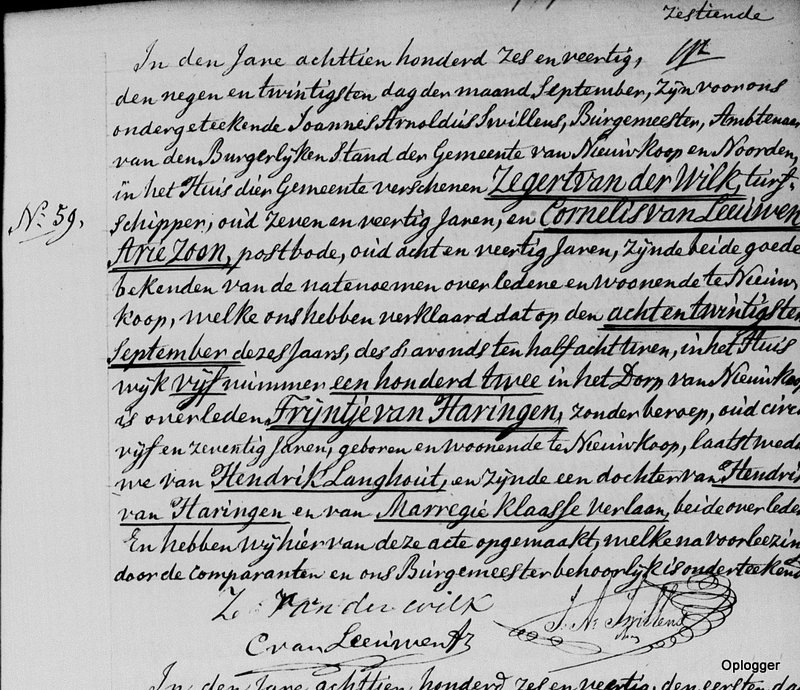 zestiende
In den Jare achttien honderd zes en veertig,
den negen en twintigsten dag der maand September, zijn voor ons
ondergeteekende Joannes Arnoldus Swillens, Burgemeester, Ambtenaar
van den Burgerlyken Stand der Gemeente van Nieuwkoop en Noorden,
in het Huis dier Gemeente verschenen Zegert van der Wilk, turf-
No. 59.
schipper, oud zeven en veertig Jaren, en Cornelis van Leeuwen
Arie Zoon, postbode, oud acht en veertig Jaren, zynde beide goede
bekenden van de natenoemen overledene en woonende te Nieuw,
koop, welke ons hebben verklaard dat op den acht en twintigsten
September dezes Jaars, des avonds ten half acht uren, in het Huis
wyk vyf nummer een honderd twee in het Dorp van Nieuwkoop
is overleden Tryntje van Haringen, zonder beroep, oud circa
vyf en zeventig Jaren, geboren en woonende te Nieuwkoop, laatst wedu
we van Hendrik Langhout, en zynde een dochter van Hendrik
van Haringen en van Marregie Klaasse Verlaan, beide overleden
En hebben wy hier van deze acte opgemaakt, welke na voorleezing
door de Comparanten en ons Burgemeester behoorlyk is onderteekend
Z. van der wilk
J. A. Swillens
C van Leeuwen Az
In den Jare achttien honderd zes en veertig, den eersten da
Oplogger